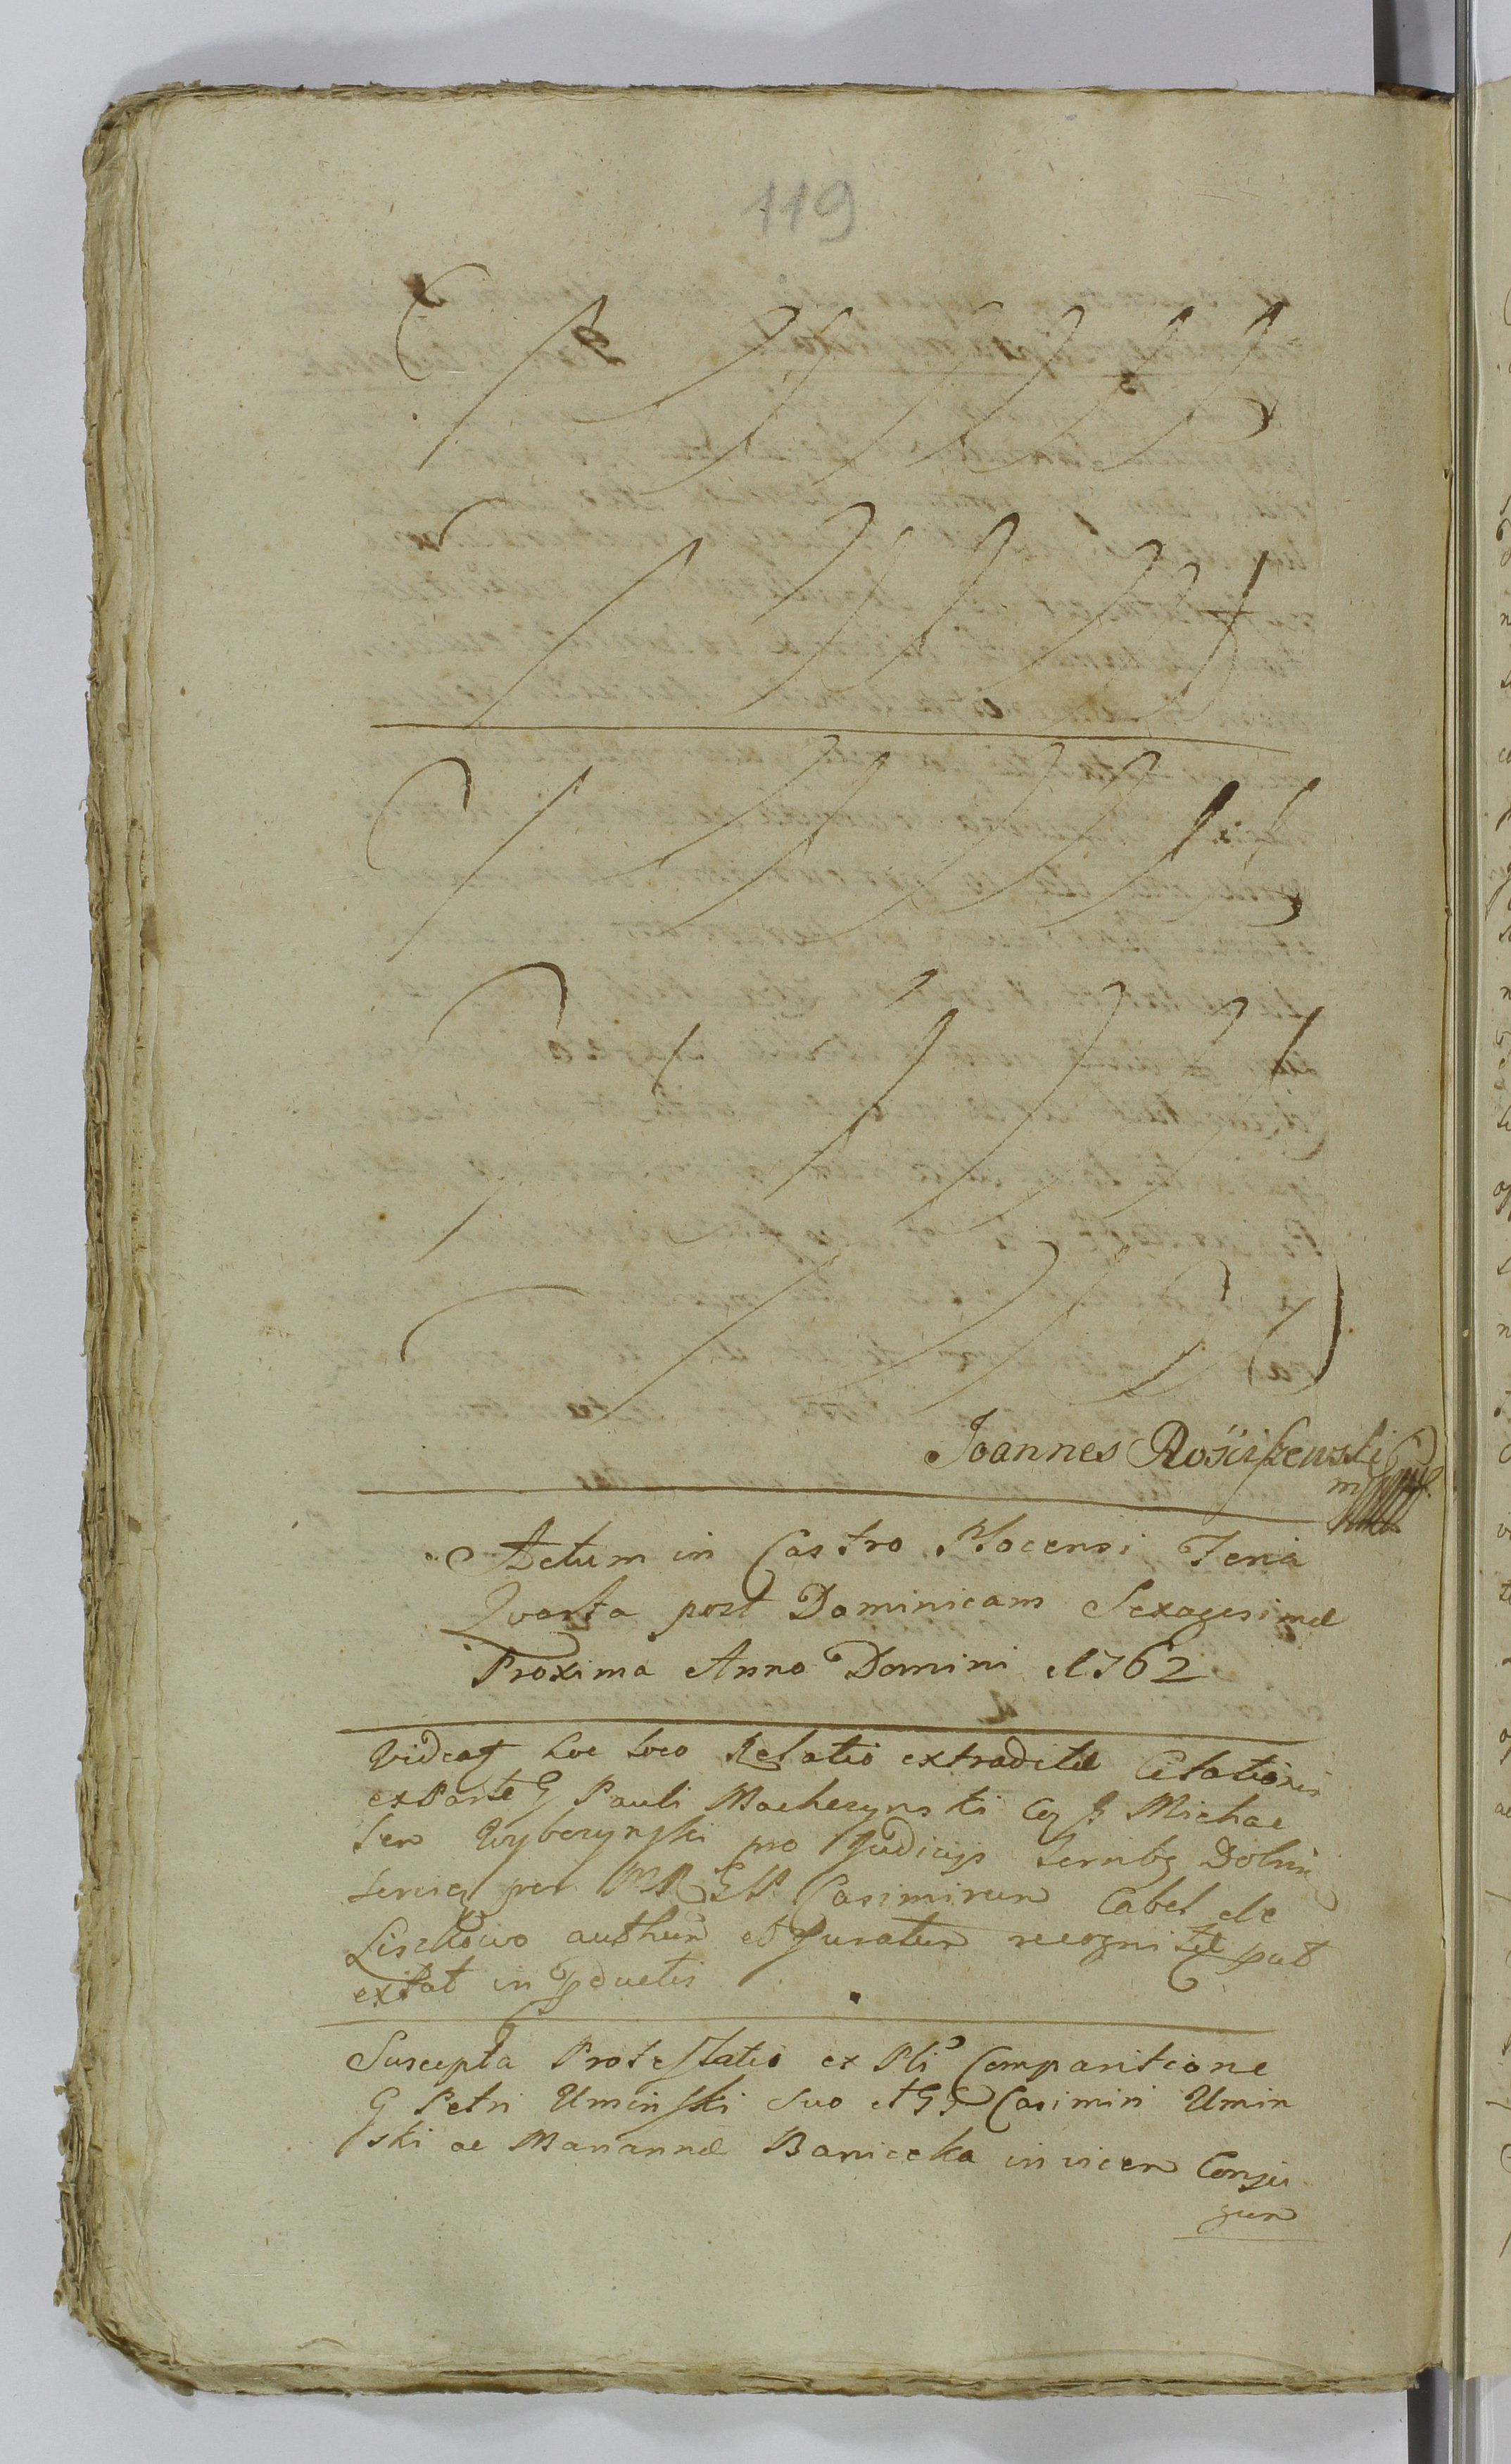 119
Joannes Rościszewski
mp
Actum in Castro Plocensi Feria
Qvarta post Dominicam Sexagesimæ
Proxima Anno Domini 1762
Videat hoc loco Relatio extraditæ Citationis
ex Parte G Pauli Macheszynski Michae
lem Wybczynski pro Judicijs Dobrin
per Casimirum Cabel de
Lischowo authen et Juratum recognitæ put
extat in
Suscepta Protestatio ex Pli Comparitione
G Petri Uminski suo et GG Casimiri Umin
ski ac Mariannæ Baniccka invicem Conju
gum